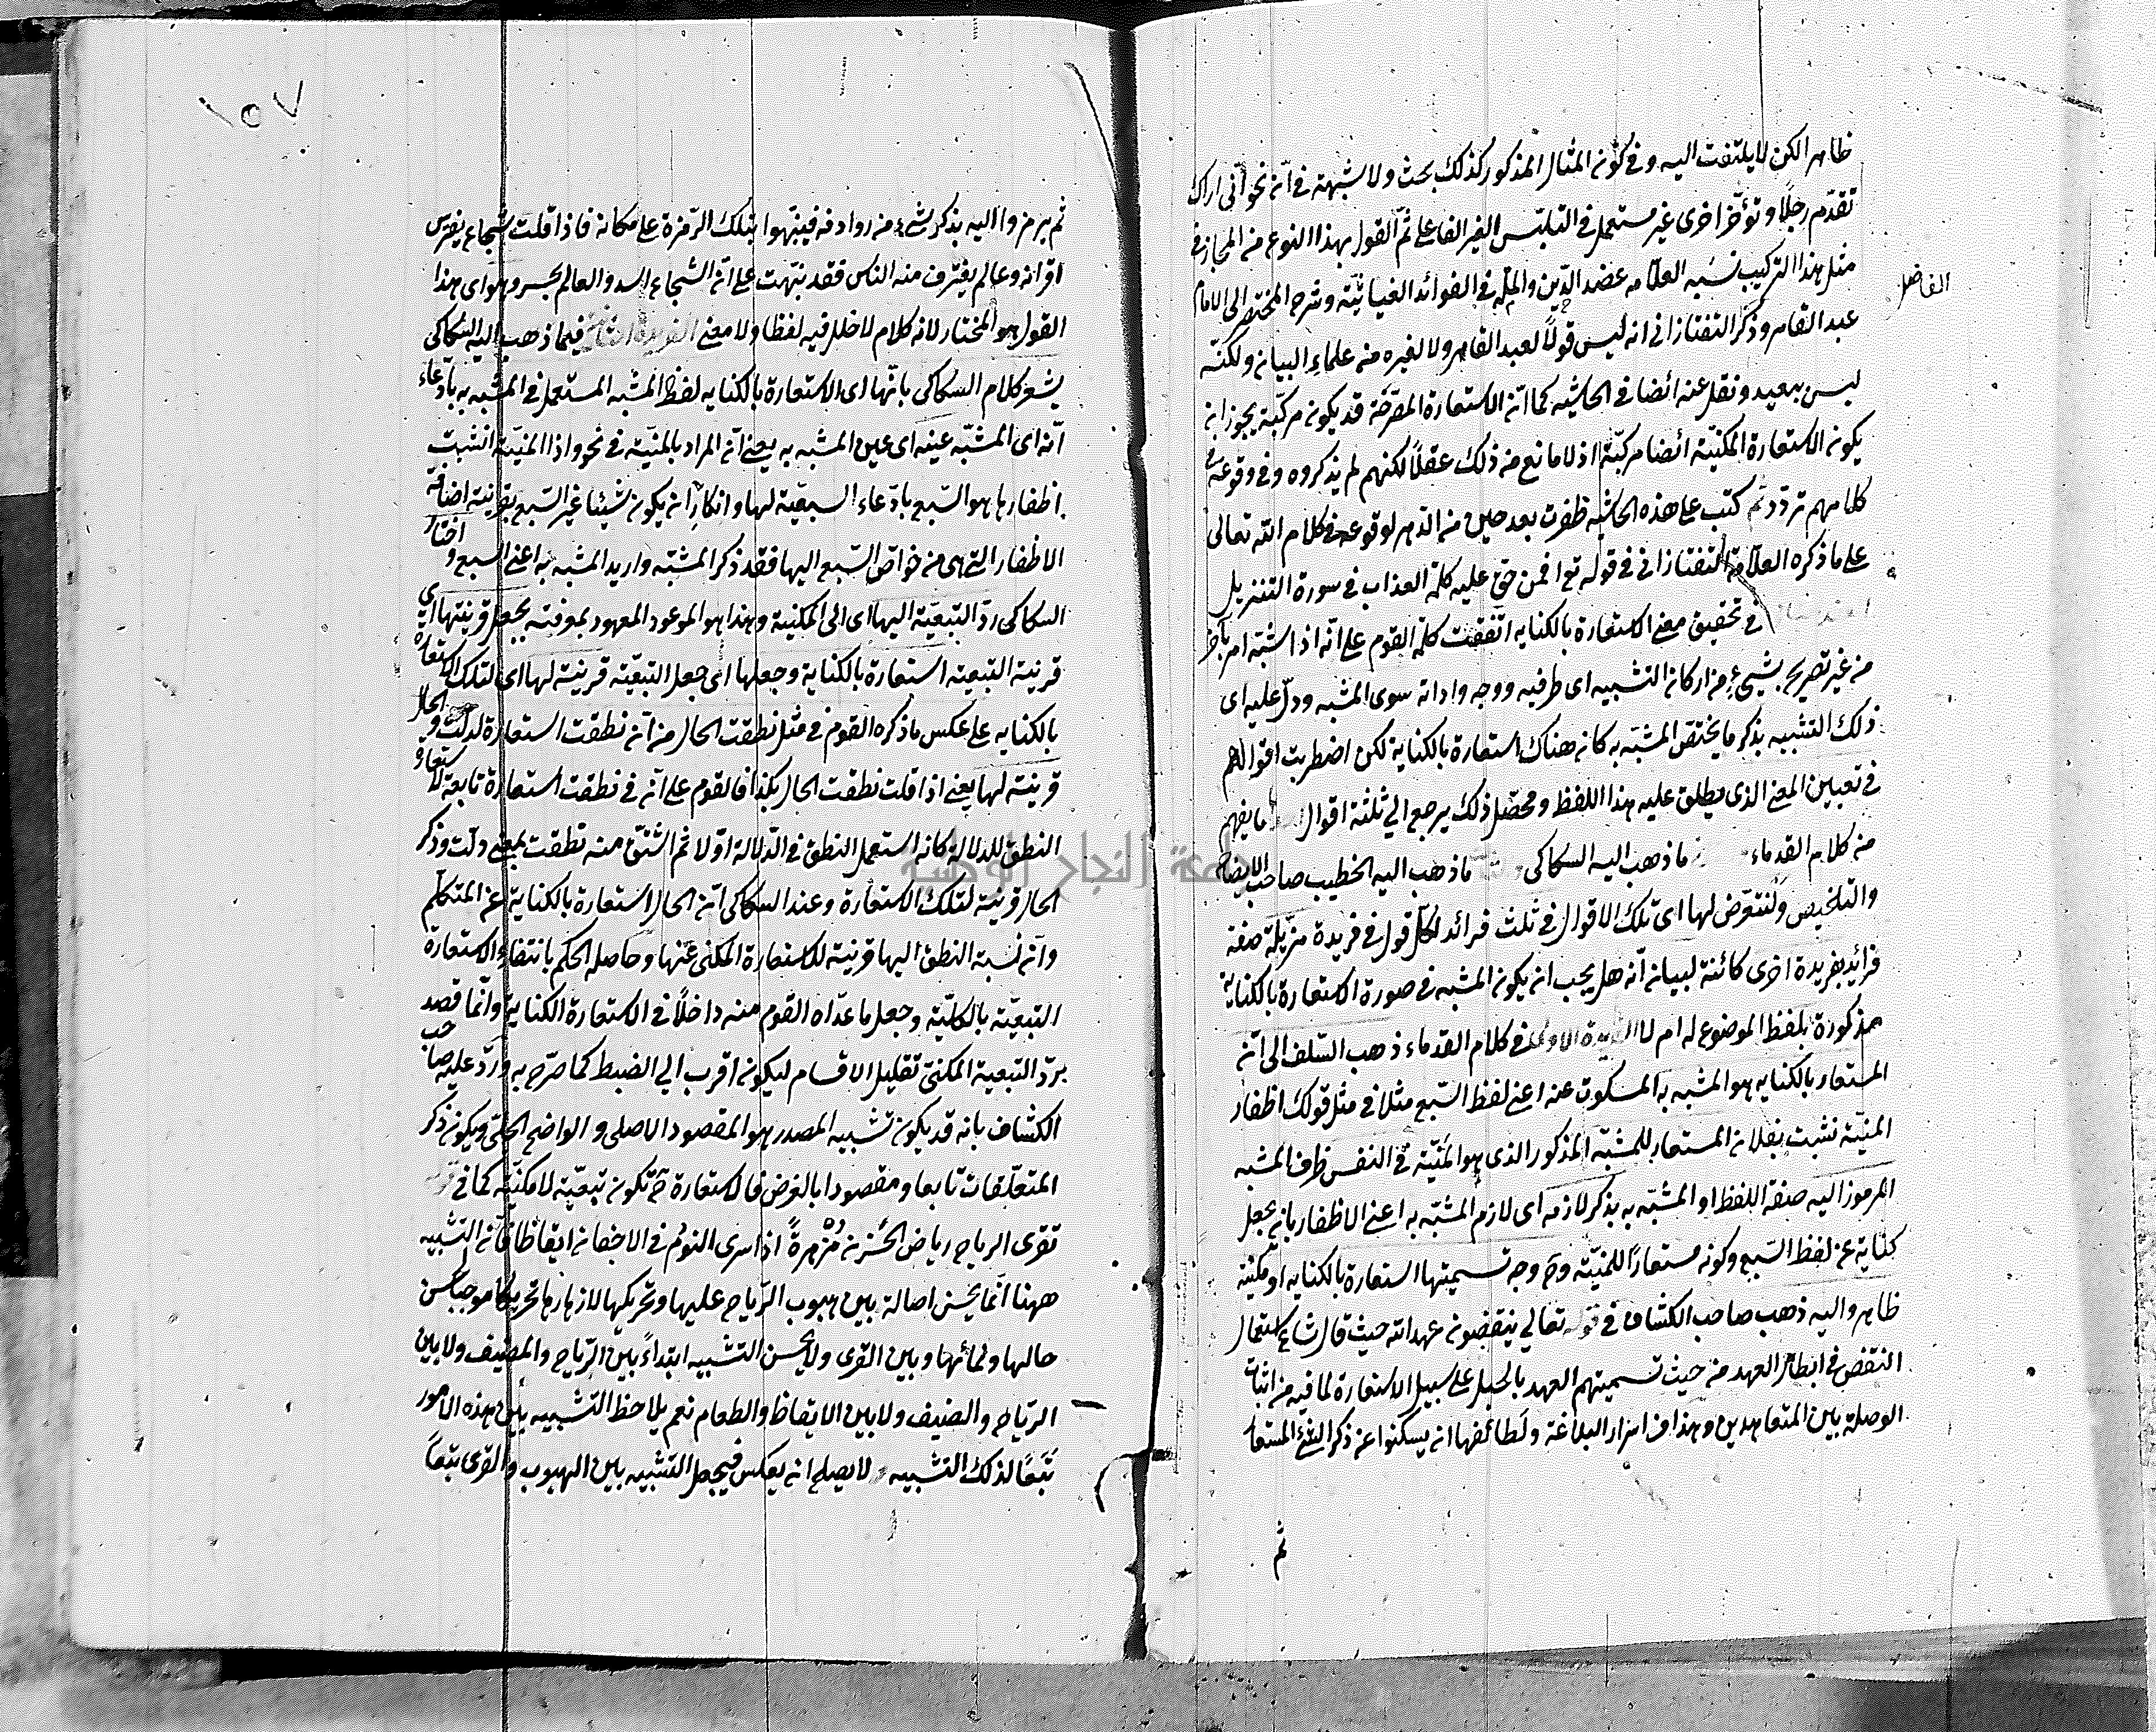 ظاهر الكن لا يلتفت اليه وفي كون المثال المذكور كذلك بحث ولا شبهة في ان نحو انّي اراك
تقدّم رجلاً وتؤخّر اخرى غير مستعمل في التلبّس الغير الفاعلي ثمّ القول بهذا النوع من المجاز في
مثل هذا التركيب نسبه العلامه عضد الدّين والملّة في الفوائد الغياثيّة وشرح المختصر الى الامام
الفاضل
عبد القاهر وذكر التفتازاني انه ليس قولاً لعبد القاهر ولا لغيره من علماء البيان ولكنّه
ليس ببعيد ونقل عنه ائضا في الحاشيه كما انّ الاستعارة المصرّحة قد يكون مركّبة يجوز ان
يكون الاستعارة المكنيّة ائضا مركبّة اذ لا مانع من ذلك عقلاً لكنهم لم يذكروه وفي وقوعه في
كلامهم تردّد ثم كتب على هذه الحاشيه ظفرت بعد حين من الدّهر لوقوعه في كلام الله تعالى
على ما ذكره العلّامة التفتازاني في قوله تع افمن حق عليه كلمة العذاب في سورة التنزيل
في تحقيق معنى الاستعارة بالكنايه اتّفقت كلمة القوم على انّه اذا شبّه امر بآخر
من غير تصريح بشيءٍ من اركان التشبيه اى طرفيه ووجه واداته سوى المشبه ودلّ عليه اى
ذلك التشبيه بذكر ما يختصّ المشبّه به كان هناك استعارة بالكناية لكن اضطربت اقوالهم
في تعيين المعنى الذى يطلق عليه هذا اللفظ ومحصّل ذلك يرجع الي ثلثة اقوال ما يفهم
من كلام القدماء ما ذهب اليه السكاكى ما ذهب اليه الخطيب صاحب الايضاح
والتلخيص ولنتعرّض لها اى تلك الاقوال في ثلث فرائد لكل قول في فريدة مزيّلة صفة
فرائد بفريدة اخرى كائنة لبيان انّه هل يجب ان يكون المشبه في صورة الاستعارة بالكناية
مذكورة بلفظ الموضوع له ام لا الفريدة الاولى في كلام القدماء ذهب السّلف الى انّ
المستعار بالكنايه هو المشبه به المسكوت عنه اعني لفظ السّبع مثلا في مثل قولك اظفار
المنيّة نشبت بفلان المستعار للمشبّه المذكور الذى هو المنيّة في النفس ظرف المشبه
المرموز اليه صفة اللفظ او المشبّه به بذكر لازمه اى لازم المشبّه به اعني الاظفار بان يجعل
كناية عن لفظ السّبع وكونه مستعاراً للمنيّة وح وجه تسميتها استعارة بالكنايه او مكنيّة
ظاهر واليه ذهب صاحب الكشاف في قوله تعالي ينقضون عهد الله حيث قال شاع استعمال
النقض في ابطال العهد من حيث تسميتهم العهد بالحبل على سبيل الاستعارة لما فيه من اثبات
الوصلة بين المتعاهدين وهذا من اسرار البلاغة ولطائفها ان يسكتوا عن ذكر الشئ المستعار
ثم
١٥٧
ثم يرمزوا اليه بذكر شئ من روادفه فينبّهوا بتلك الرّمزة على مكانه فاذا قلت شجاع يفترس
اقرانه وعالم يغترف منه الناس فقد نبّهت على انّ الشجاع اسد والعالم بحر وهو اى هذا
القول هو المختار لانه كلام لا خلل فيه لفظا ولا معنى الفريدة الثانية فيما ذهب اليه السّكاكى
يشعر كلام السكاكى بانّها اى الاستعارة بالكنايه لفظ المشبه المستعمل في المشبه به بادّعاء
انّه اى المشبّه عينه اى عين المشبه به يعني انّ المراد بالمنيّة في نحو واذا المنيّة انشبت
اظفارها هو السّبع بادّعاء السبعيّة لها وانكار ان يكون شيئا غير السّبع بقرينة اضافة
الاظفار التي هى من خواص السّبع اليها فقد ذكر المشبّه واريد المشبه به اعني السبع واختار
السكاكى ردّ التبعيّة اليها اى الى المكنية وهذا هو الموعود المعهود بمعرفته بجعل قرينتها اي
قرينة التبعية استعارة بالكناية وجعلها اى جعل التبعيّة قرينة لها اى لتلك الاستعارة
بالكنايه على عكس ما ذكره القوم في مثل نطقت الحال من انّ نطقت استعارة لدلّت والحال
قرينة لها يعني اذا قلت نطقت الحال بكذا فالقوم على انّ في نطقت استعارة تابعة لاستعارة
النطق للدلالة كانه استعمل النطق في الدّلالة اوّلا ثم اشتقّ منه نطقت بمعنى دلّت وذكر
الحال قرينة لتلك الاستعارة وعند السكاكى انّ الحال استعارة بالكناية عن المتكلّم
وانّ نسبة النطق اليها قرينة للاستعارة المكنى عنها وحاصله الحكم بانتفاء الاستعارة
التبعيّة بالكليّة وجعل ما عدّاه القوم منه داخلاً في الاستعارة الكناية وانّما قصد
بردّ التبعية المكنيّ تقليل الاقسام ليكون اقرب الي الضبط كما صرّح به وردّ عليه صاحب
الكشاف بانه قد يكون تشبيه المصدر هو المقصود الاصلى والواضح الجلّى ويكون ذكر
المتعلّقات تابعا ومقصودا بالغرض فالاستعارة ح تكون تبعيّة لا مكنيّة كما في قوله
تقرى الرياح رياض الحَزن مُزْهِرةً اذا سرى النوم في الاجفان ايقاظا فانّ التشبيه
ههنا انّما يحسن اصالة بين هبوب الرّياح عليها وتحريكها لازهارها تحريكا موجبا لحسن
حالها ونمائها وبين القرى ولا يحسن التشبيه ابتداءً بين الرّياح والمضيف ولا بين
الرّياض والضيف ولا بين الايقاظ والطعام نعم يلاحظ التشبيه بين هذه الامور
تَبَعًا لذلك التشبيه لا يصلح ان يعكس فيجعل التشبيه بين الهبوب والقرى تبعاً